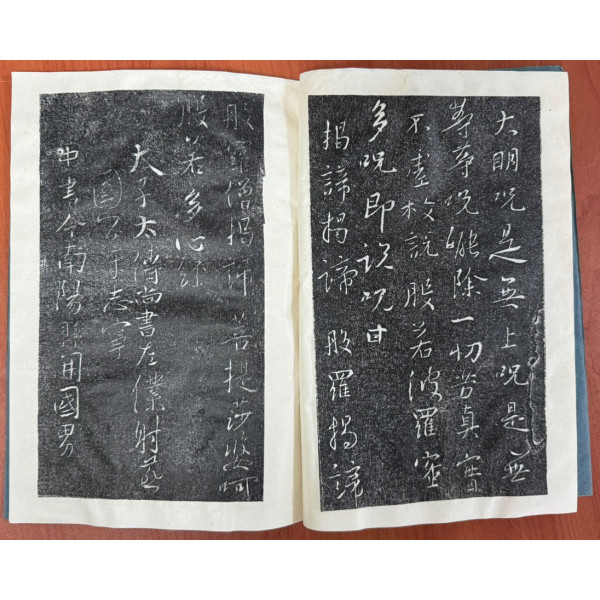 大明咒是無上咒是無
等等咒能除一切苦真實
不虛故說般若波羅蜜
多咒即說咒曰
揭諦揭諦 般羅揭諦
般羅僧揭諦 菩提莎婆呵
般若多心經
太子太傅尚書左僕射燕
國公于志寧
中書令南陽縣開國男